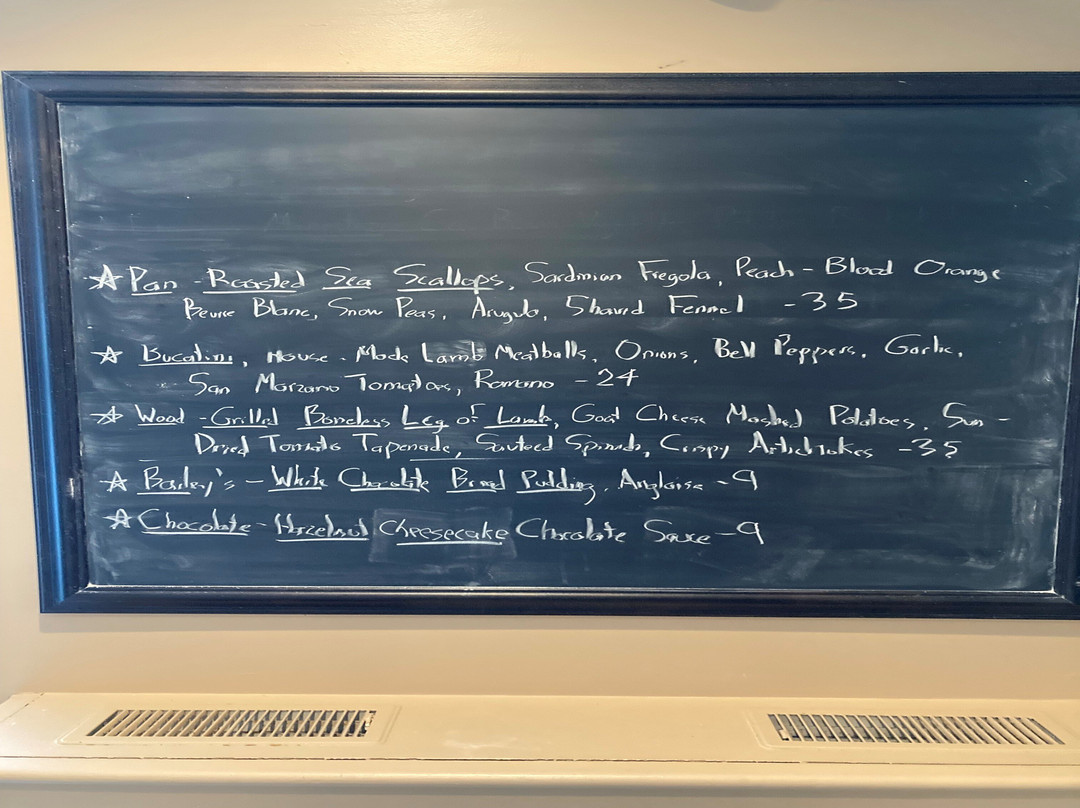 ☆ Pan-Roasted Sea Scallops, Sardinian Fregola, Peach-Blood Orange
Beurre Blanc, Snow Peas, Arugula, Shaved Fennel -35
☆ Bucatini, House-Made Lamb Meatballs, Onions, Bell Peppers, Garlic,
San Marzano Tomatoes, Romano -24
☆ Wood-Grilled Boneless Leg of Lamb, Goat Cheese Mashed Potatoes, Sun-
Dried Tomato Tapenade, Sauteed Spinach, Crispy Artichokes -35
☆ Bailey's-White Chocolate Bread Pudding, Anglaise -9
☆ Chocolate-Hazelnut Cheesecake Chocolate Sauce -9